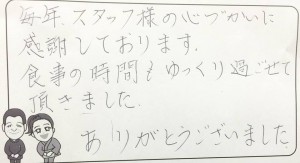 毎年、スタッフ様の心づかいに
感謝しております。
食事の時間もゆっくり過ごせて
頂きました。
ありがとうございました。